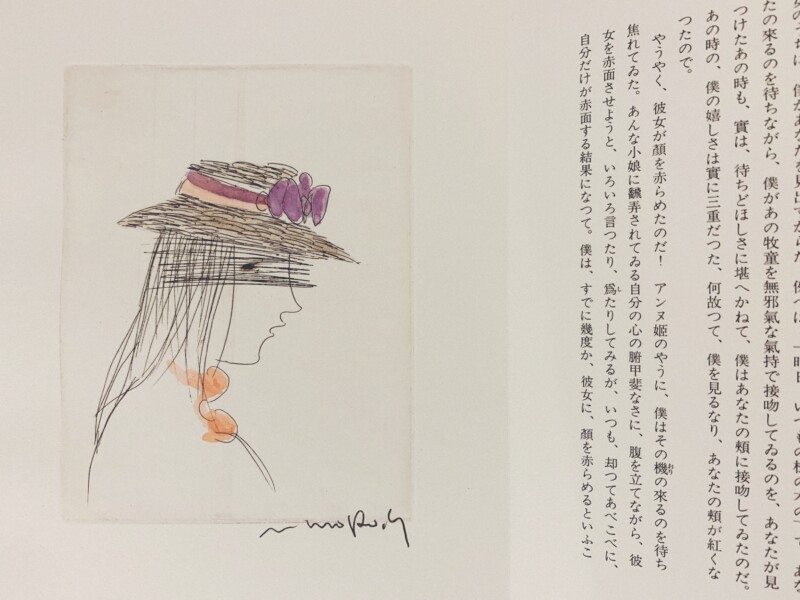 たの來るのを待ちながら、僕があの牧童を無邪氣な氣持で接吻してゐるのを、あなたが見
つけたあの時も、實は、待ちどほしさに堪へかねて、僕はあなたの頰に接吻してゐたのだ。
あの時の、僕の嬉しさは實に三重だつた、何故つて、僕を見るなり、あなたの頰が紅くな
つたので。
やうやく、彼女が顏を赤らめたのだ！　アンヌ姬のやうに、僕はその機の來るのを待ち
焦れてゐた。あんな小娘に飜弄されてゐる自分の心の腑甲斐なさに、腹を立てながら、彼
女を赤面させようと、いろいろ言つたり、爲たりしてみるが、いつも、却つてあべこべに、
自分だけが赤面する結果になつて。僕は、すでに幾度か、彼女に、顏を赤らめるといふこ